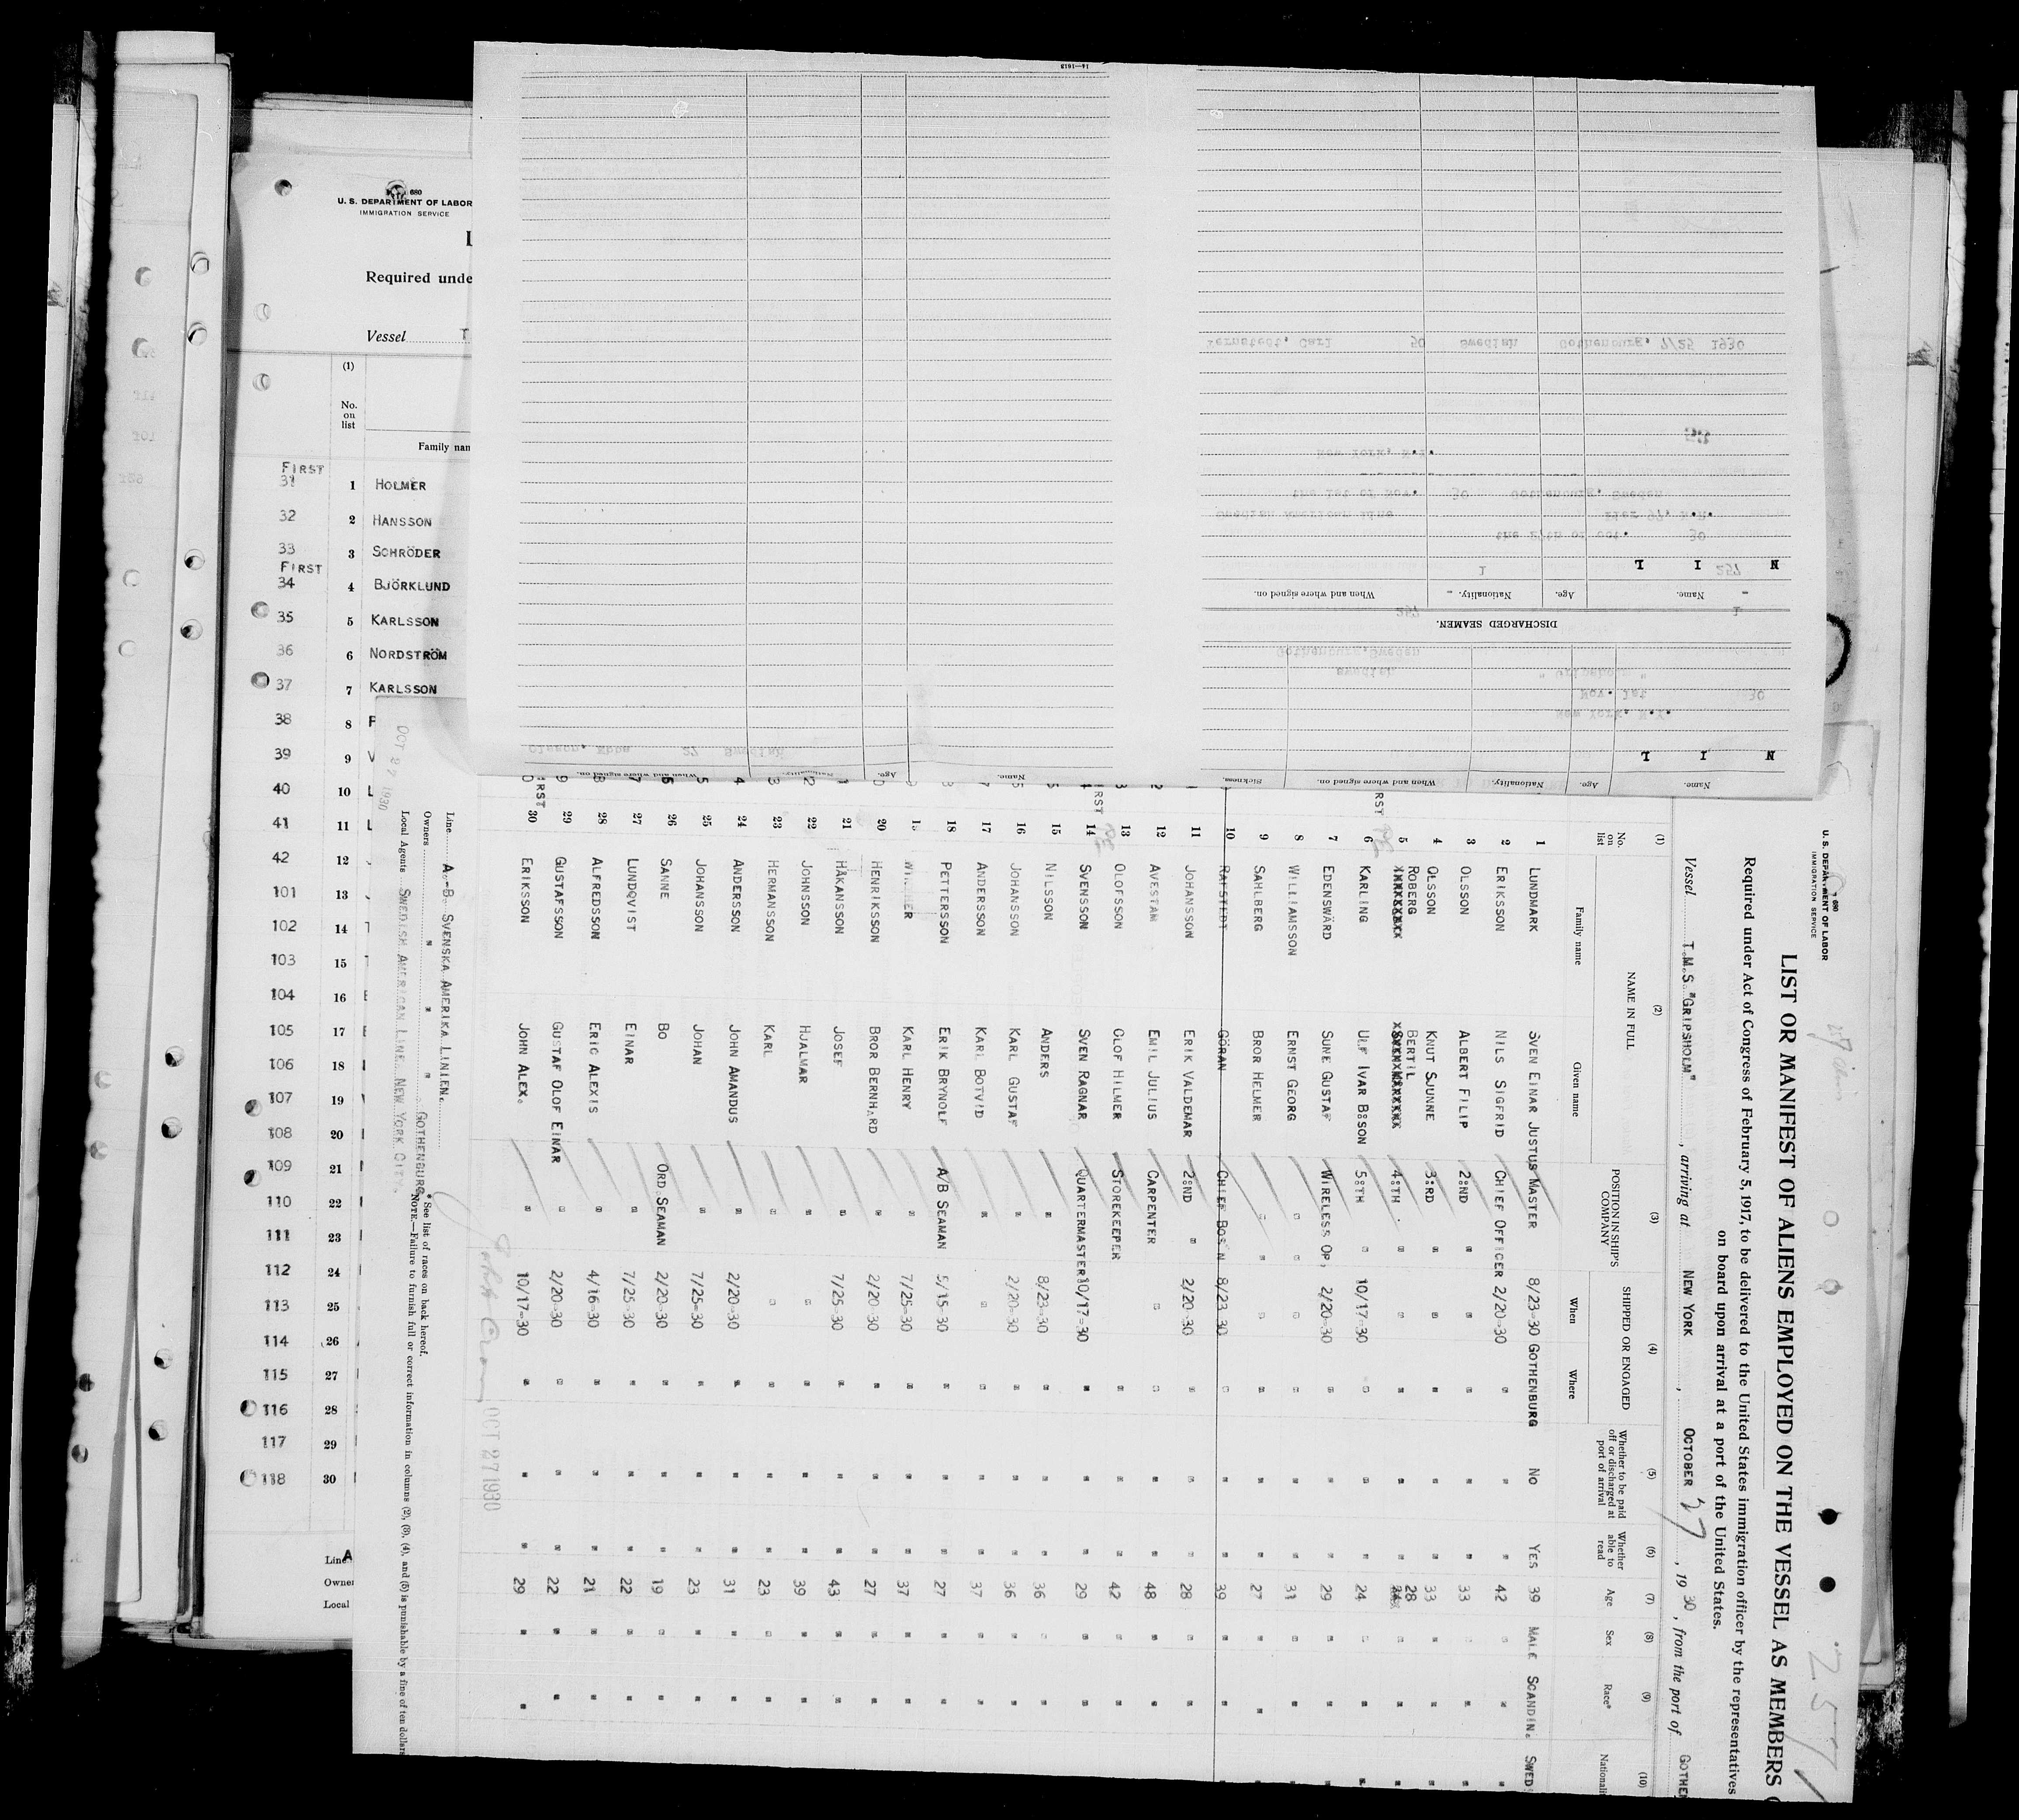 680
U. S. DEPARTMENT OF LABOR
IMMIGRATION SERVICE
Required unde
Vessel T
(1)
No. on list
Family nam
FIRST
31 1 HOLMER
32 2 HANSSON
33 3 SCHRÖDER
FIRST
34 4 BJÖRKLUND
35 5 KARLSSON
36 6 NORDSTRÖM
37 7 KARLSSON
38 8
39 9
40 10
41 11
42 12
101 13
102 14
103 15
104 16
105 17
106 18
107 19
108 20
109 21
110 22
111 23
112 24
113 25
114 26
115 27
116 28
117 29
118 30
Line: A
Owner
Local
14—1613
Name. Age. Nationality. When and where signed on.
DISCHARGED SEAMEN.
Name. Age. Nationality. When and where signed on.
N I L
Name. Age. Nationality. When and where signed on. Sickness.
N I L
Fernstedt, Carl 50 Swedish Gothenburg, 7/25 1930
New York, N.Y.
the 1st of Nov. 30 Gothenburg, Sweden
Swedish American Line Pier 97, N.R.
the 27th of Oct. 30
257
1
Gothenburg, Sweden
Swedish "Gripsholm"
Nov. 1st 30
New York, N.Y.
Olsson, Ebba 27 Swedish
680
U. S. DEPARTMENT OF LABOR
IMMIGRATION SERVICE
257
LIST OR MANIFEST OF ALIENS EMPLOYED ON THE VESSEL AS MEMBERS
Required under Act of Congress of February 5, 1917, to be delivered to the United States immigration officer by the representatives
on board upon arrival at a port of the United States.
Vessel T.M.S. "GRIPSHOLM", arriving at NEW YORK, OCTOBER 27, 1930, from the port of GOTHE
(1) (2) (3) (4) (5) (6) (7) (8) (9) (10)
No. on list NAME IN FULL POSITION IN SHIP'S COMPANY SHIPPED OR ENGAGED Whether to be paid off or discharged at port of arrival Whether able to read Age Sex Race* Nationali
Family name Given name When Where
1 LUNDMARK SVEN EINAR JUSTUS MASTER 8/23-30 GOTHENBURG NO YES 39 MALE SCANDIN. SWED
2 ERIKSSON NILS SIGFRID CHIEF OFFICER 2/20-30 " " " 42 " " "
3 OLSSON ALBERT FILIP 2:ND " " " " " 33 " " "
4 OLSSON KNUT SJUNNE 3:RD " " " " " 33 " " "
5 ROBERG BERTIL 4:TH " " " " " 28 " " "
6 KARLING ULF IVAR B:SON 5:TH " 10/17-30 " " " 24 " " "
7 EDENSWÄRD SUNE GUSTAF WIRELESS OP, 2/20-30 " " " 29 " " "
8 WILLIAMSSON ERNST GEORG " " " " " 31 " " "
9 SAHLBERG BROR HELMER " " " " " 27 " " "
10 RAFSTEDT GÖRAN CHIEF BOS'N 8/23-30 " " " 39 " " "
11 JOHANSSON ERIK VALDEMAR 2:ND " 2/20-30 " " " 28 " " "
12 AVESTAM EMIL JULIUS CARPENTER " " " " 48 " " "
13 OLOFSSON OLOF HILMER STOREKEEPER " " " 42 " " "
14 SVENSSON SVEN RAGNAR QUARTERMASTER 10/17-30 " " " 29 " " "
15 NILSSON ANDERS " 8/23-30 " " " 36 " " "
16 JOHANSSON KARL GUSTAF " 2/20-30 " " " 36 " " "
17 ANDERSSON KARL BOTVID " " " " " 37 " " "
18 PETTERSSON ERIK BRYNOLF A/B SEAMAN 5/15-30 " " " 27 " " "
19 KARL HENRY " 7/25-30 " " " 37 " " "
20 HENRIKSSON BROR BERNHARD " 2/20-30 " " " 27 " " "
21 HÅKANSSON JOSEF " 7/25-30 " " " 43 " " "
22 JOHNSSON HJALMAR " " " " " 39 " " "
23 HERMANSSON KARL " " " " " 23 " " "
24 ANDERSSON JOHN AMANDUS " 2/20-30 " " " 31 " " "
25 JOHANSSON JOHAN " 7/25-30 " " " 23 " " "
26 SANNE BO ORD. SEAMAN 2/20-30 " " " 19 " " "
27 LUNDQVIST EINAR " 7/25-30 " " " 22 " " "
28 ALFREDSSON ERIC ALEXIS " 4/16-30 " " " 21 " " "
29 GUSTAFSSON GUSTAF OLOF EINAR " 2/20-30 " " " 22 " " "
30 ERIKSSON JOHN ALEX. " 10/17-30 " " " 29 " " "
OCT 27 1930
Line A.-B. SVENSKA AMERIKA LINIEN.
Owners " " " GOTHENBURG
Local Agents SWEDISH AMERICAN LINE. NEW YORK CITY.
* See list of races on back hereof.
NOTE.—Failure to furnish full or correct information in columns (2), (3), (4), and (5) is punishable by a fine of ten dollars
OCT 27 1930